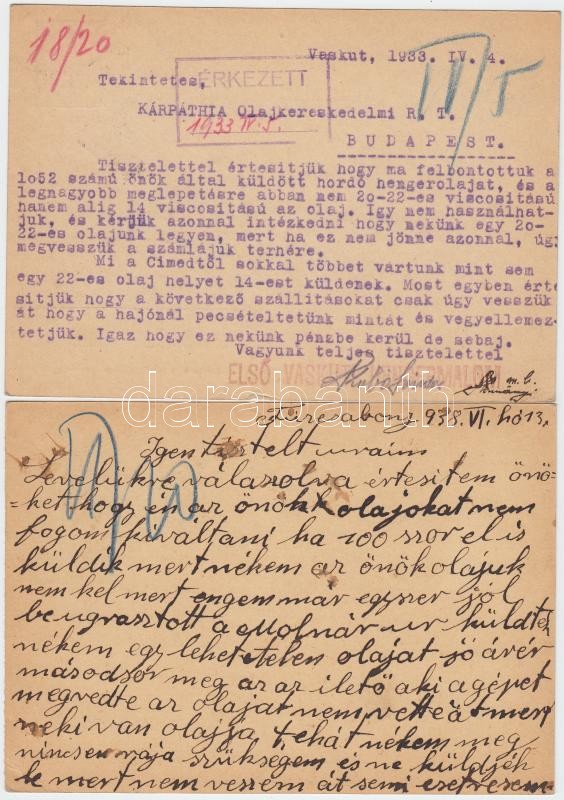 18/20
Vaskut, 1933. IV. 4.
Tekintetes,
ÉRKEZETT
KÁRPÁTHIA Olajkereskedelmi R. T.
1933 IV. 5.
BUDAPEST.
Tisztelettel értesitjük hogy ma felbontottuk a
1o52 számu önök által küldött hordó hengerolajat, és a
legnagyobb meglepetésre abban nem 2o-22-es viscositású
hanem alig 14 viscositású az olaj. Igy nem használhat-
juk, és kérjük azonnal intézkedni hogy nekünk egy 2o-
22-es olajunk legyen, mert ha ez nem jönne azonnal, úgy
megvesszük a számlájuk ternére.
Mi a Cimedtől sokkal többet vártunk mint sem
egy 22-es olaj helyet 14-est küldenek. Most egyben érte
sitjük hogy a következő szállitásokat csak úgy vesszük
át hogy a hajónál pecsételtetünk mintát és vegyellemez-
tetjük. Igaz hogy ez nekünk pénzbe kerül de sebaj.
Vagyunk teljes tisztelettel
ELSŐ VASKUTI
darabanth.com
Füzesabony 938. VI. hó 13.
Igen tisztelt uraim
Levelükre válaszolva értesitem önö-
ket hogy én az önökk olajokat nem
fogom kiváltani ha 100 szor el is
küldik mert nékem az önök olajuk
nem kel mert engem már egyszer jol
beugrasztott a Molnár ur küldtek
nékem egy lehetetelen olajat jó árér
másodszor meg az az ilető aki a gépet
megvedte az olajat nem vette át mert
neki van olajja, tehát nékem meg
nincsen rája szükségem és ne küldjék
le mert nem veszem át semi esetre sem